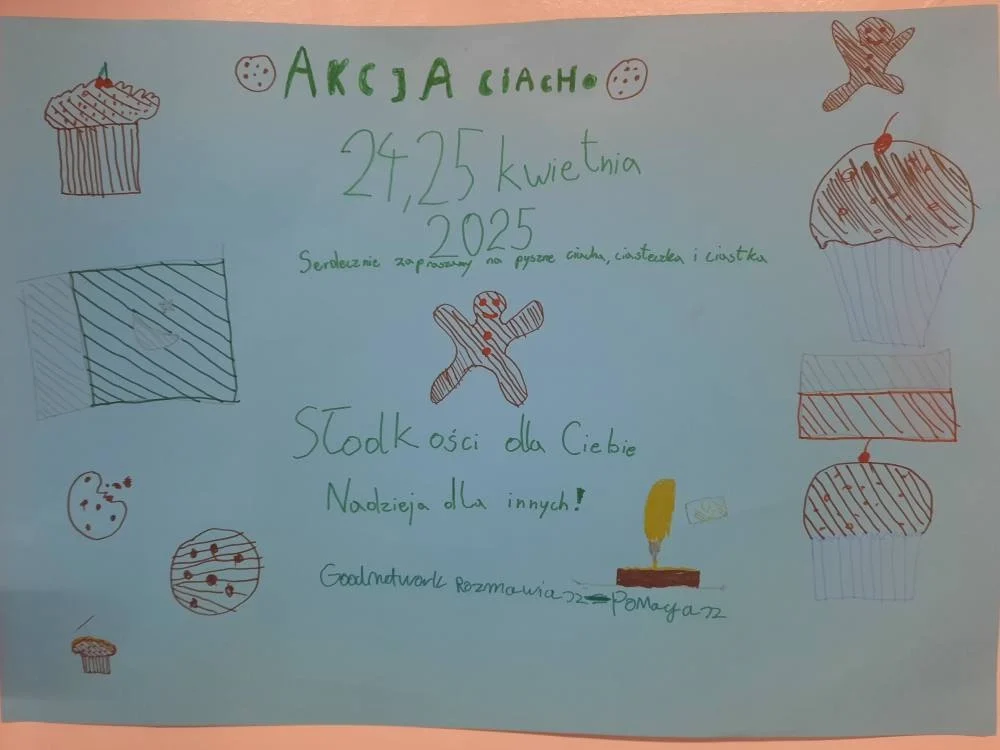 AKCJA CIACHO
24,25 kwietnia
2025
Serdecznie zapraszamy na pyszne ciacha, ciasteczka i ciastka
Słodkości dla Ciebie
Nadzieja dla innych!
Goodnetwork Rozmawiasz=Pomagasz